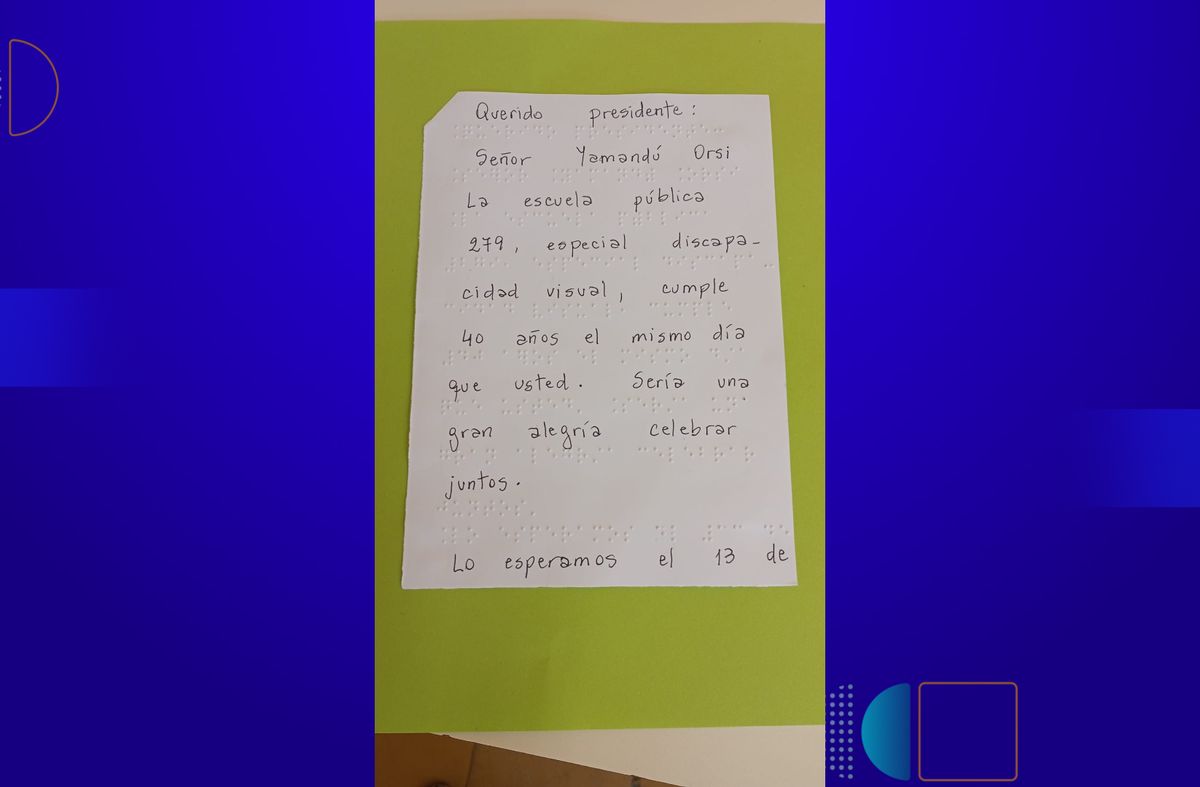 Querido presidente:
Señor Yamandú Orsi
La escuela pública
279, especial discapa-
cidad visual, cumple
40 años el mismo día
que usted. Sería una
gran alegría celebrar
juntos.
Lo esperamos el 13 de